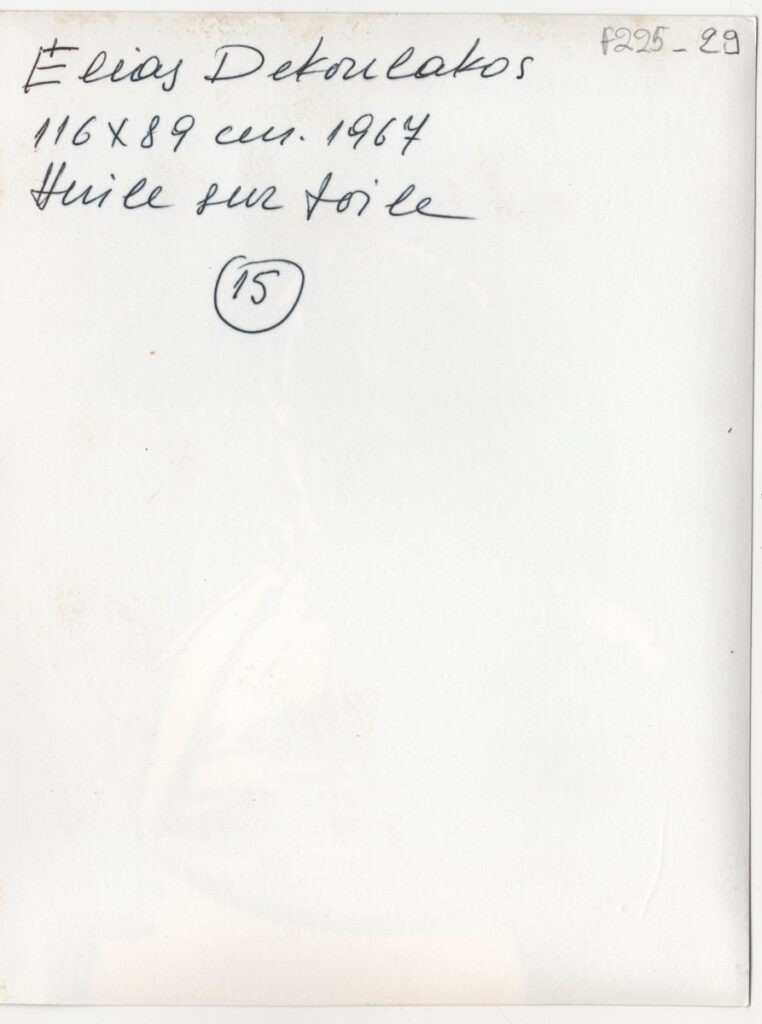 F225-29
Elias Dekoulakos
116 X 89 cm. 1967
Huile sur toile
15